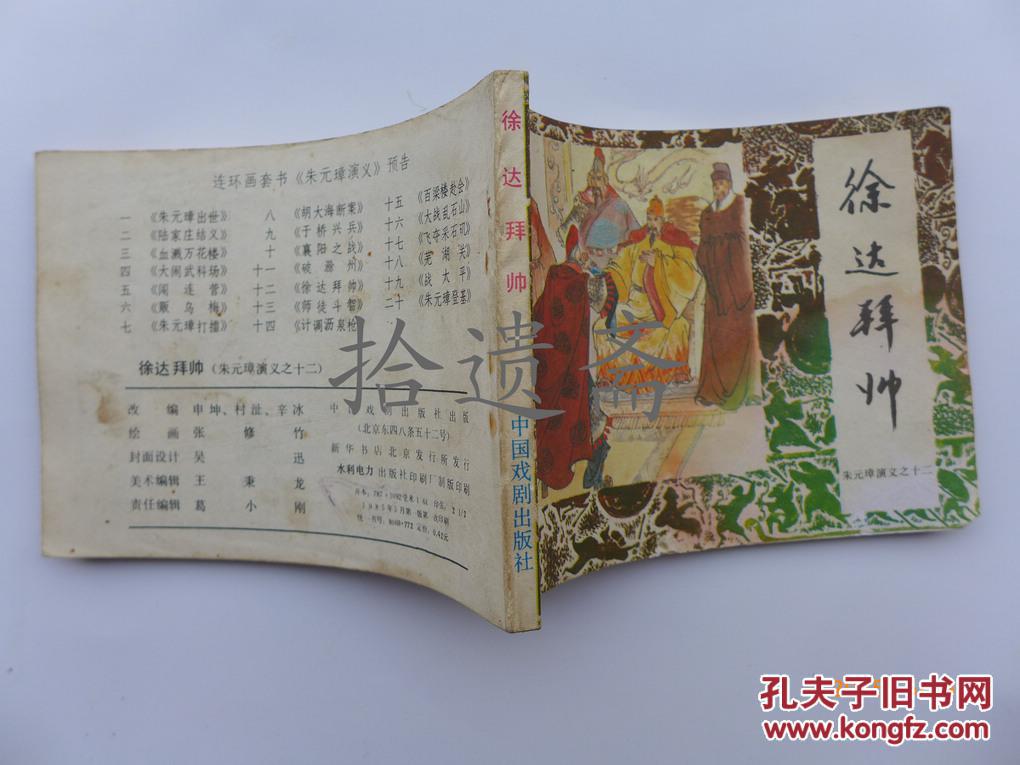 连环画套书《朱元璋演义》预告
一 《朱元璋出世》 八 《胡大海断案》 十五 《百梁楼赴会》
二 《陆家庄结义》 九 《于桥兴兵》 十六 《大战乱石山》
三 《血溅万花楼》 十 《襄阳之战》 十七 《飞夺采石矶》
四 《大闹武科场》 十一 《破滁州》 十八 《芜湖关》
五 《闯连营》 十二 《徐达拜帅》 十九 《战太平》
六 《贩乌梅》 十三 《师徒斗智》 二十 《朱元璋登基》
七 《朱元璋打擂》 十四 《计调沥泉枪》
徐达拜帅（朱元璋演义之十二）
改编 申坤、村沚、辛冰
绘画 张修竹
封面设计 吴迅
美术编辑 王秉龙
责任编辑 葛小刚
中国戏剧出版社出版
（北京东四八条五十二号）
新华书店北京发行所发行
水利电力出版社印刷厂制版印刷
开本：787×1092毫米1/64 印张：2 1/2
1985年5月第一版第一次印刷
统一书号：8069·772 定价：0.42元
徐达拜帅
中国戏剧出版社
徐达拜帅
朱元璋演义之十二
拾遗斋
孔夫子旧书网
www.kongfz.com